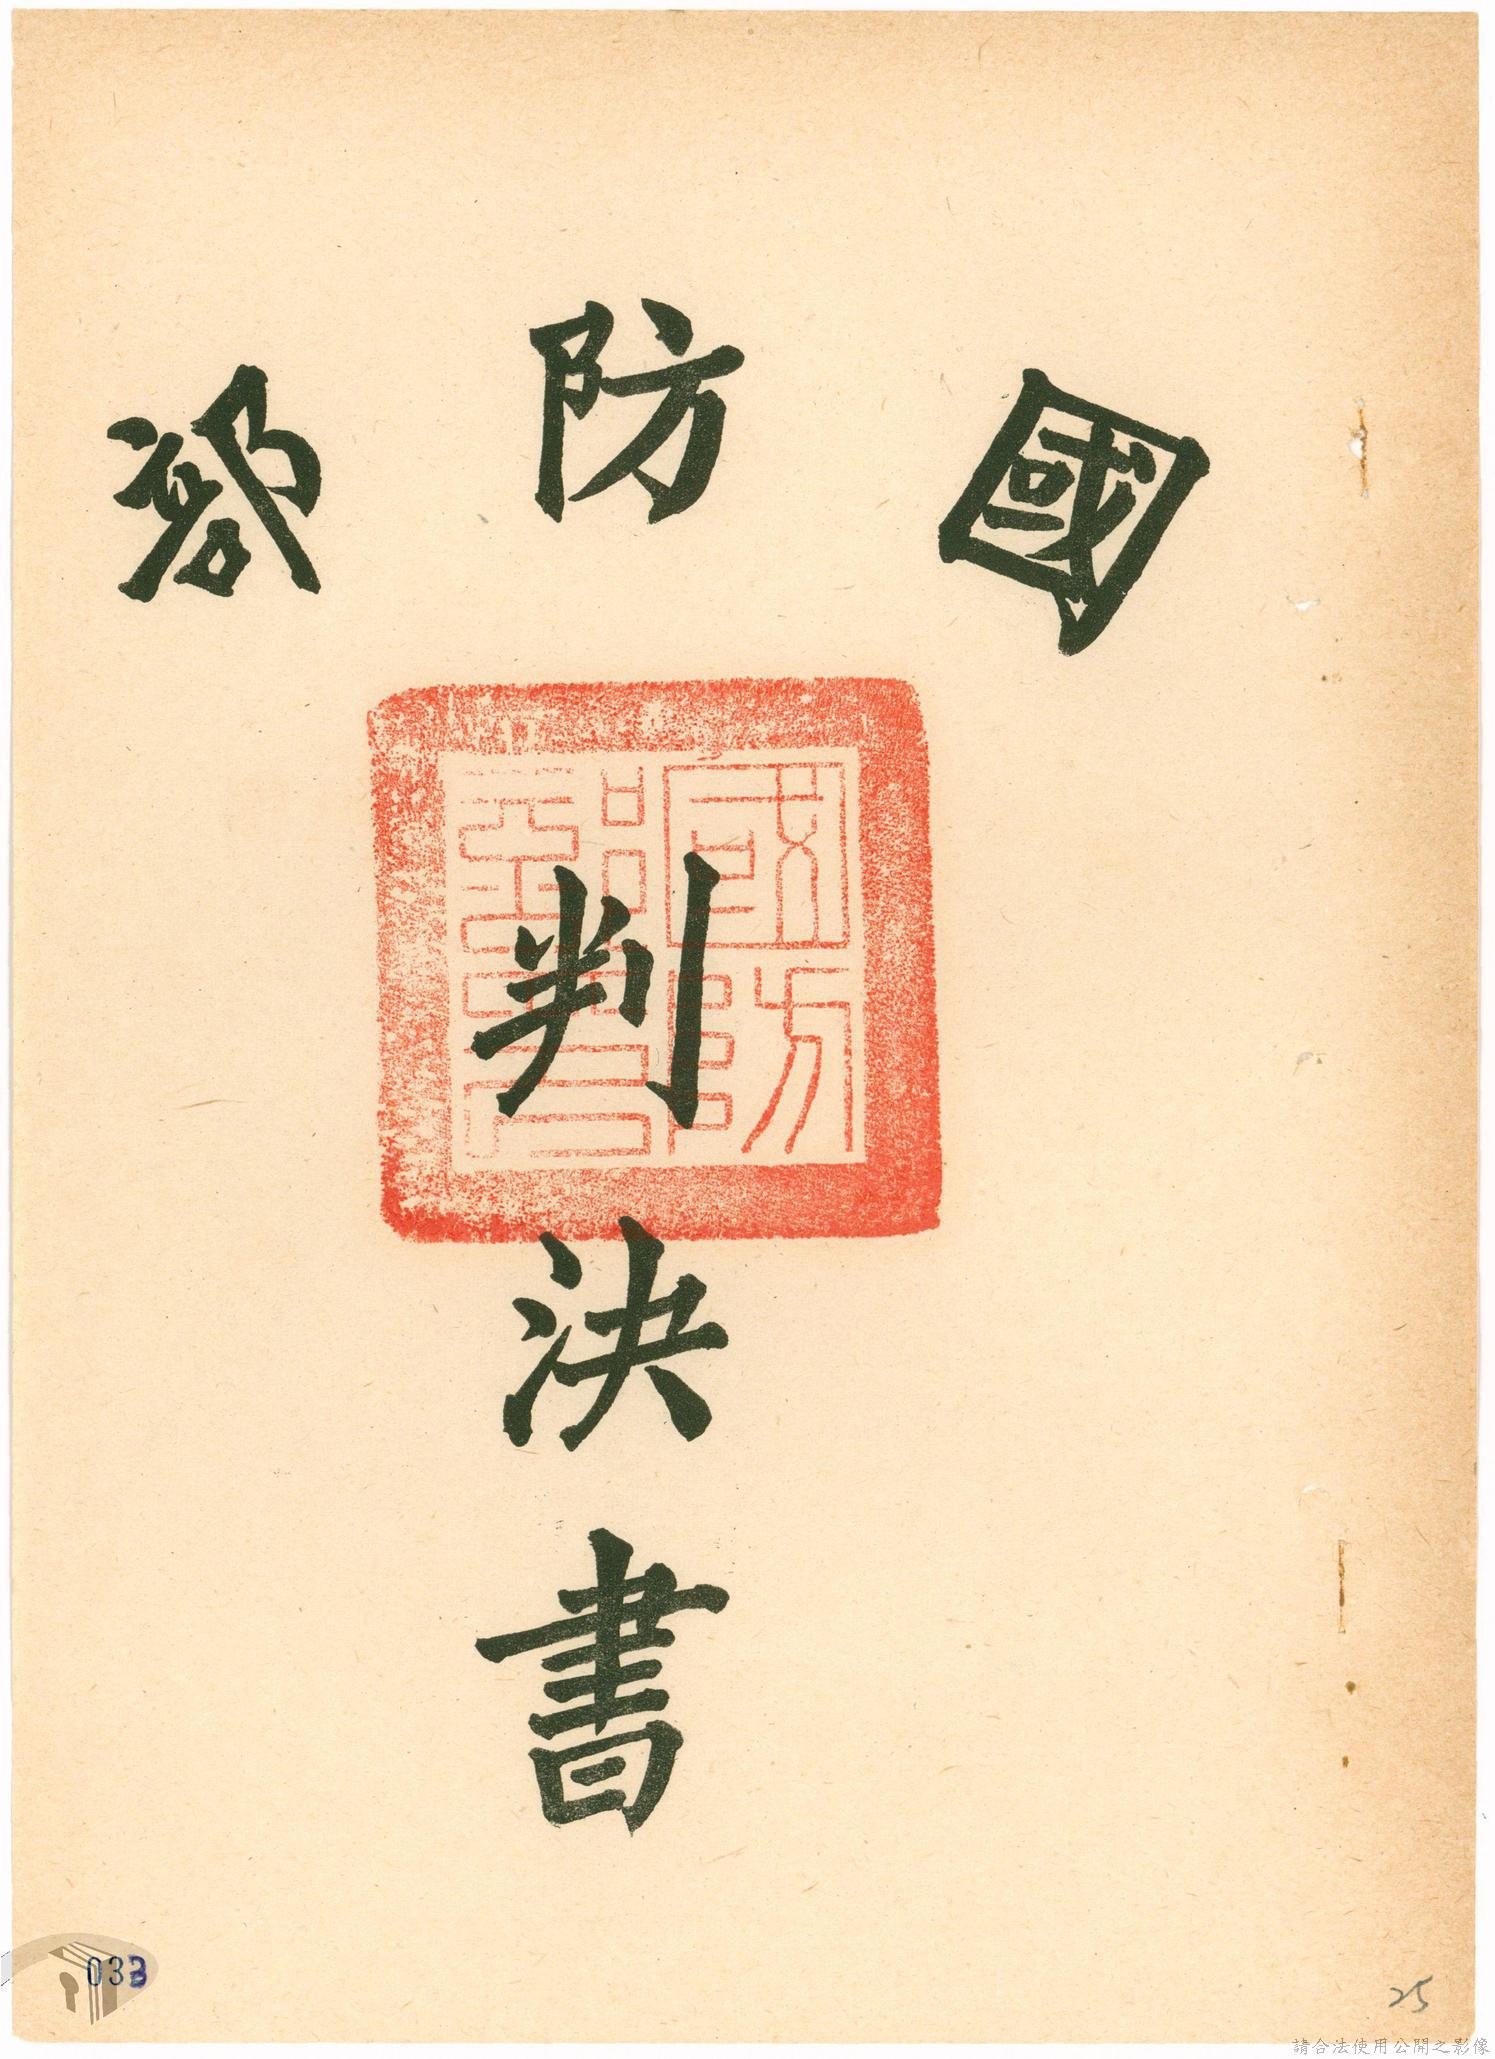 國防部
判決書
國防部印
033
25
請合法使用公開之影像